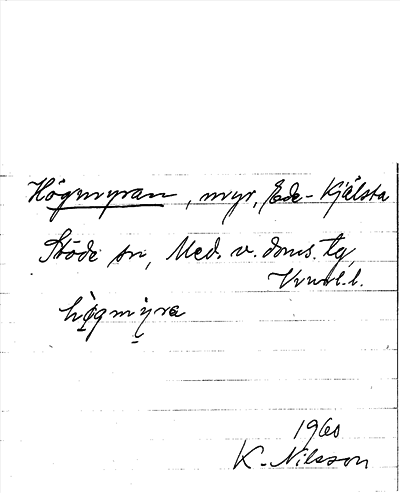 Högmyran, myr, Ede-Kjälsta
Stöde sn, Med. v. doms. tg,
Vrnl.l.
høgmyra
1960
K. Nilsson